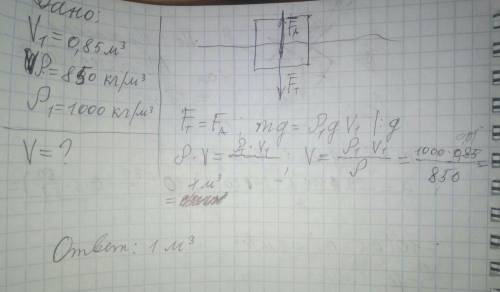 Дано:
V₁ = 0,85 м³
ρ = 850 кг/м³
ρ₁ = 1000 кг/м³
V = ?
F_A
F_т
F_т = F_A ; mg = ρ₁g V₁ |: g
ρ · V = ρ₁ · V₁ ; V = ρ₁ · V₁ / ρ = 1000 · 0,85 / 850 =
= 1 м³
Ответ: 1 м³